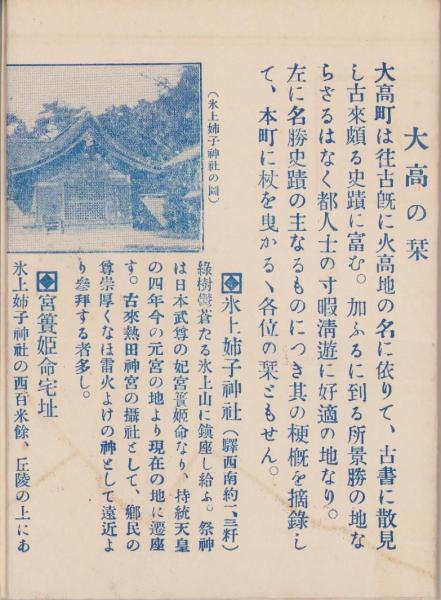 大高の栞
大高町は往古旣に火高地の名に依りて、古書に散見
し古來頗る史蹟に富む。加ふるに到る所景勝の地な
らざるはなく都人士の寸暇淸遊に好適の地なり。
左に名勝史蹟の主なるものにつき其の梗槪を摘錄し
て、本町に杖を曳かるゝ各位の栞ともせん。
(氷上姉子神社の圖)
氷上姉子神社(驛西南約一、三粁)
綠樹鬱蒼たる氷上山に鎭座し給ふ。祭神
は日本武尊の妃宮簀姫命なり、持統天皇
の四年今の元宮の地より現在の地に遷座
す。古來熱田神宮の攝社として、鄕民の
尊崇厚くなほ雷火よけの神として遠近よ
り參拜する者多し。
宮簀姫命宅址
氷上姉子神社の西百米餘、丘陵の上にあ